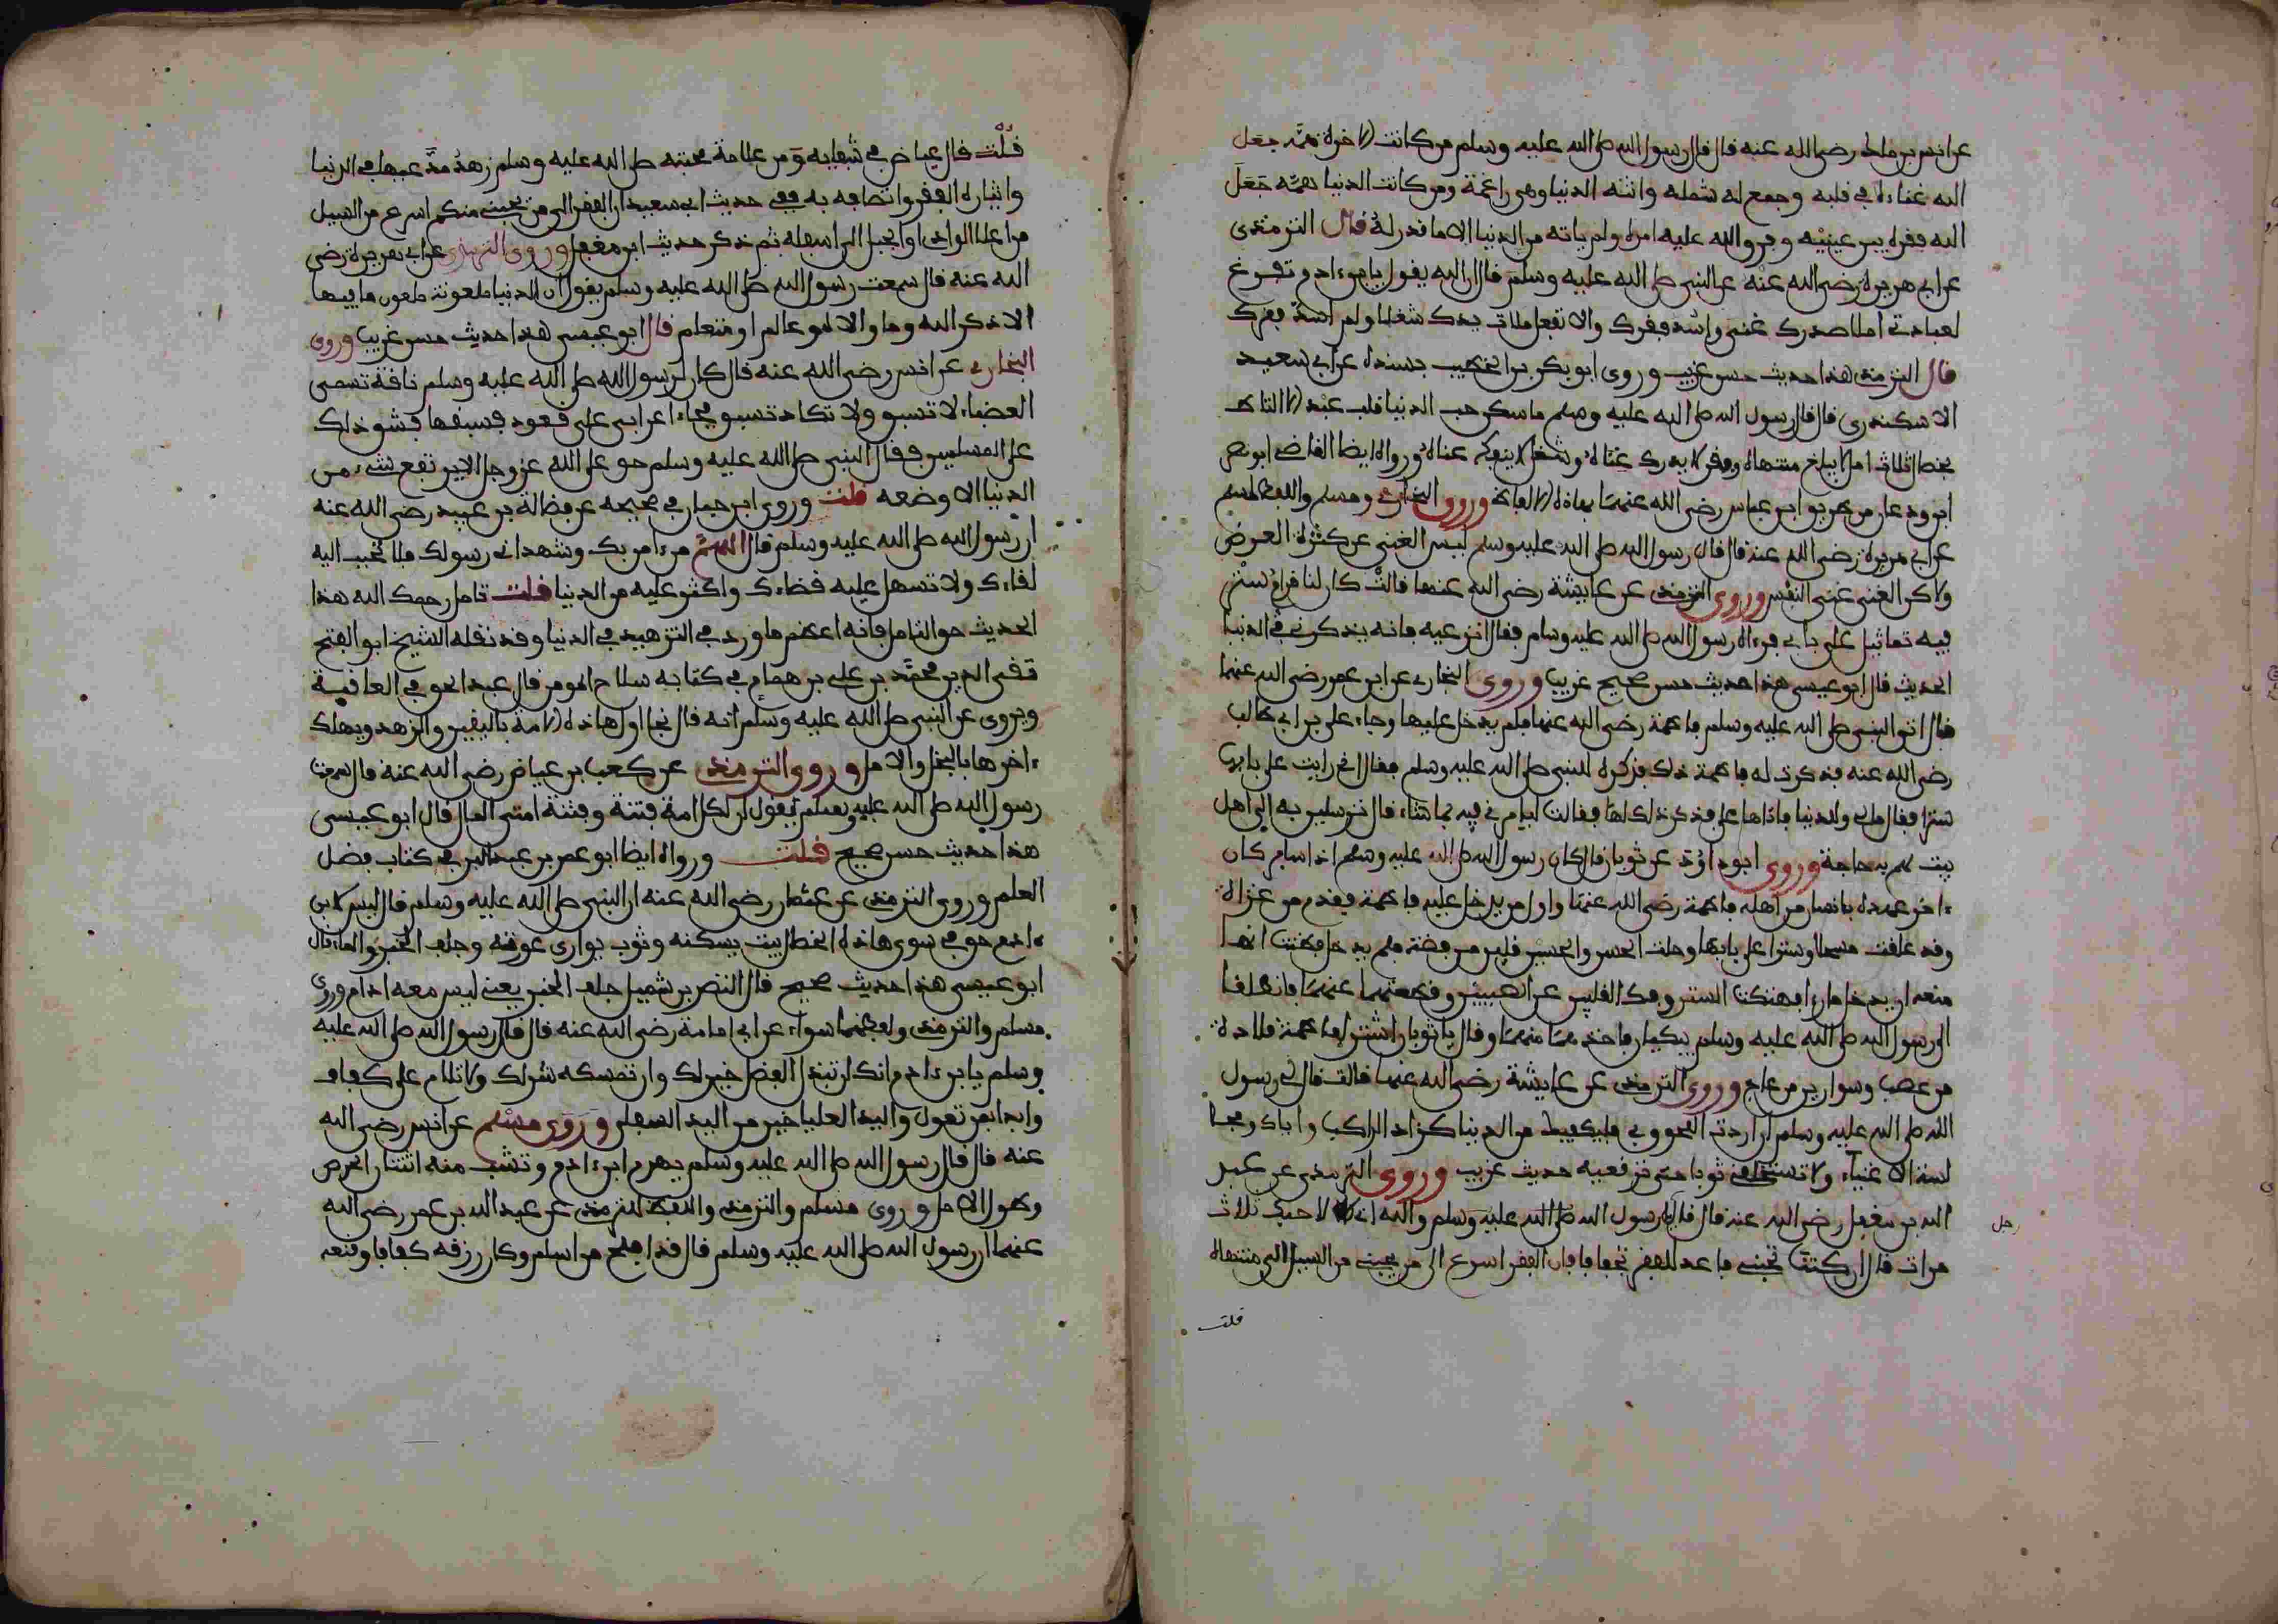 عن انس بن مالك رضي الله عنه قال قال رسول الله صلى الله عليه وسلم من كانت الاخرة همه جعل
الله غناءه في قلبه وجمع له شمله واتته الدنيا وهي راغمة ومن كانت الدنيا همه جعل
الله فقره بين عينيه وفرق الله عليه امره ولم ياته من الدنيا الا ما قدر له قال الترمذي
عن ابي هريرة رضي الله عنه عن النبي صلى الله عليه وسلم قال ان الله يقول يا بن ءادم تفرغ
لعبادتي املا صدرك غنى واسد فقرك والا تفعل ملات يدك شغلا ولم اسد فقرك
قال الترمذي هذا حديث حسن غريب وروى ابو بكر بن الخطيب بسنده عن ابي سعيد
الاسكندري قال قال رسول الله صلى الله عليه وسلم ما سكن حب الدنيا قلب عبد الا التاط
بخصال ثلاث امل لا يبلغ منتهاه وفقر لا يدرك غناه وشغل لا ينفك عناه ورواه ايضا القاضي ابو نصر
ابن ودعان من طريق ابن عباس رضي الله عنهما بهاذه الالفاظ وروى البخاري ومسلم واللفظ لمسلم
عن ابي هريرة رضي الله عنه قال قال رسول الله صلى الله عليه وسلم ليس الغنى عن كثرة العرض
ولاكن الغنى غنى النفس وروى الترمذي عن عايشة رضي الله عنها قالت كان لنا قرام ستر
فيه تماثيل على بابي فرءاه رسول الله صلى الله عليه وسلم فقال انزعيه فانه يذكرني في الدنيا
الحديث قال ابو عيسى هذا حديث حسن صحيح غريب وروى البخاري عن ابن عمر رضي الله عنهما
قال اتى النبي صلى الله عليه وسلم فاطمة رضي الله عنها فلم يدخل عليها وجاء علي بن ابي طالب
رضي الله عنه فذكرت له فاطمة ذلك فذكره للنبي صلى الله عليه وسلم فقال اني رايت على بابها
سترا فقال مالي وللدنيا فاتاها علي فذكر ذلك لها فقالت ليامرني فيه بما شاء قال ترسلين به الى اهل
بيت بهم حاجة وروى ابو داود عن ثوبان قال كان رسول الله صلى الله عليه وسلم اذا سافر كان
ءاخر عهده بانسان من اهله فاطمة رضي الله عنها واول من يدخل عليه فاطمة فقدم من غزاة
وقد علقت مسحا او سترا على بابها وحلت الحسن والحسين قلبين من فضة فلم يدخل فظنت انما
منعه ان يدخل ما رءا فهتكت الستر وفك القلبين عن الصبيين وقطعتهما عنهما فانطلقا
الى رسول الله صلى الله عليه وسلم يبكيان فاخذه منهما وقال يا ثوبان اشتر لفاطمة قلادة
من عصب وسوارين من عاج وروى الترمذي عن عايشة رضي الله عنها قالت قال لي رسول
الله صلى الله عليه وسلم ان اردت اللحوق بي فليكفيك من الدنيا كزاد الراكب واياك ومجا
لسة الاغنياء ولا تستخلقي ثوبا حتى ترقعيه حديث غريب وروى الترمذي عن عبد
الله بن مغفل رضي الله عنه قال قال رجل لرسول الله صلى الله عليه وسلم والله اني لاحبك ثلاث
مرات قال ان كنت تحبني فاعد للفقر تجفافا فان الفقر اسرع الى من يحبني من السيل الى منتهاه
قلت
قلت قال عياض في شفايه ومن علامة محبته صلى الله عليه وسلم زهد مدعيها في الدنيا
وايثاره الفقر واتصافه به ففي حديث ابي سعيد ان الفقر الى من يحبني منكم اسرع من السيل
من اعلا الوادي او الجبل الى اسفله ثم ذكر حديث ابن مغفل وروى الترمذي عن ابي هريرة رضي
الله عنه قال سمعت رسول الله صلى الله عليه وسلم يقول ان الدنيا ملعونة ملعون ما فيها
الا ذكر الله وما والاه وعالم او متعلم قال ابو عيسى هذا حديث حسن غريب وروى
البخاري عن انس رضي الله عنه قال كان لرسول الله صلى الله عليه وسلم ناقة تسمى
العضباء لا تسبق ولا تكاد تسبق فجاء اعرابي على قعود فسبقها فشق ذلك
على المسلمين فقال النبي صلى الله عليه وسلم حق على الله عز وجل الا يرتفع شيء من
الدنيا الا وضعه قلت وروى ابن حبان في صحيحه عن فضالة بن عبيد رضي الله عنه
ان رسول الله صلى الله عليه وسلم قال اللهم من ءامن بك وشهد اني رسولك فلا تحبب اليه
لقاءك ولا تسهل عليه قضاءك واكثر عليه من الدنيا قلت تامل رحمك الله هذا
الحديث حق التامل فانه اعظم ما ورد في التزهيد في الدنيا وقد نقله الشيخ ابو الفتح
تقي الدين محمد بن علي بن همام في كتابه سلاح المومن قال عبد الحق في العاقبة
ويروى عن النبي صلى الله عليه وسلم انه قال نجا اول هاذه الامة باليقين والزهد ويهلك
ءاخرها بالبخل والامل وروى الترمذي عن كعب بن عياض رضي الله عنه قال سمعت
رسول الله صلى الله عليه وسلم يقول ان لكل امة فتنة وفتنة امتي المال قال ابو عيسى
هذا حديث حسن صحيح قلت ورواه ايضا ابو عمر بن عبد البر في كتاب فضل
العلم وروى الترمذي عن عثمان رضي الله عنه ان النبي صلى الله عليه وسلم قال ليس لابن
ءادم حق في سوى هاذه الخصال بيت يسكنه وثوب يواري عورته وجلف الخبز والماء قال
ابو عيسى هذا حديث صحيح قال النضر بن شميل جلف الخبز يعني ليس معه ادام وروى
مسلم والترمذي ولفظهما سواء عن ابي امامة رضي الله عنه قال قال رسول الله صلى الله عليه
وسلم يا بن ءادم انك ان تبذل الفضل خير لك وان تمسكه شر لك ولا تلام على كفاف
وابدا بمن تعول واليد العليا خير من اليد السفلى وروى مسلم عن انس رضي الله
عنه قال قال رسول الله صلى الله عليه وسلم يهرم ابن ءادم وتشب منه اثنتان الحرص
وطول الامل وروى مسلم والترمذي واللفظ للترمذي عن عبد الله بن عمر رضي الله
عنهما ان رسول الله صلى الله عليه وسلم قال قد افلح من اسلم وكان رزقه كفافا وقنعه